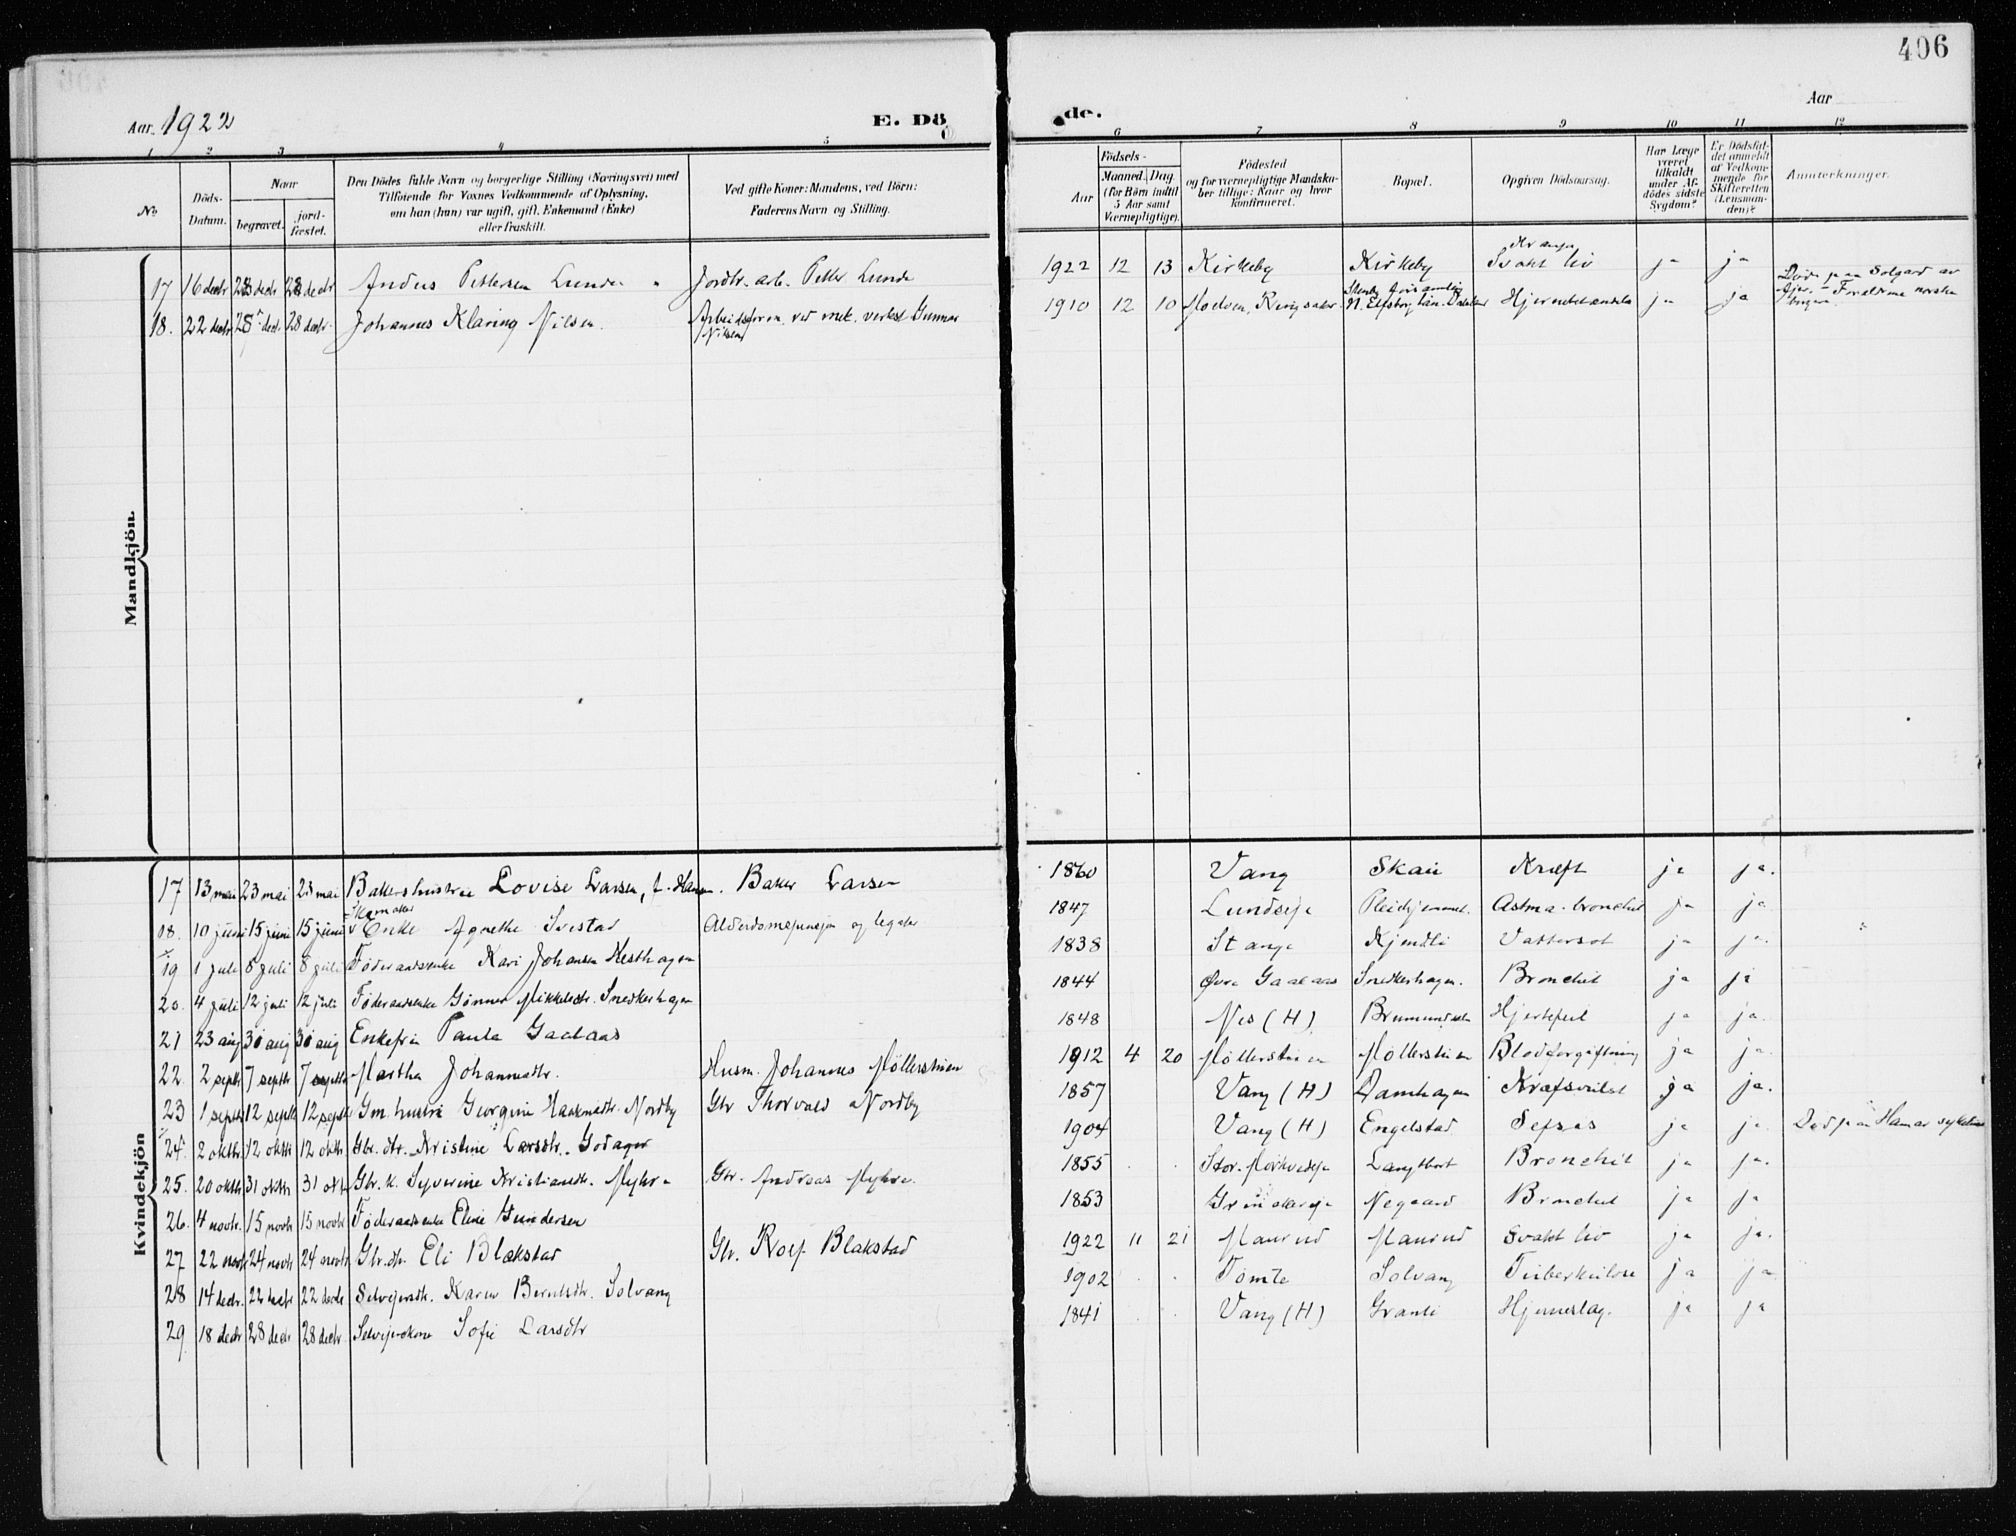 406
Aar 1922
E. Dö
de.
Aar
1 2 3 4 5 6 7 8 9 10 11 12
No
Döds-Datum.
Naar
begravet.
jord-fæstet.
Den Dödes fulde Navn og borgerlige Stilling (Næringsvei) med
Tilföiende for Voxnes Vedkommende af Oplysning,
om han (hun) var ugift, gift, Enkemand (Enke)
eller fraskilt.
Ved gifte Koner: Mandens, ved Börn:
Faderens Navn og Stilling.
Födsels-
Aar
Maaned. Dag.
(for Börn indtil
5 Aar samt
Værnepligtige).
Födested
og for værnepligtige Mandska-
ber tillige: Naar og hvor
konfirmeret.
Bopæl.
Opgiven Dödsaarsag.
Har Læge
været
tilkaldt
under Af-
dödes sidste
Sygdom?
Er Dödsfal-
det anmeldt
af Vedkom-
mende for
Skifteretten
(Lensman-
den)?
Anmærkninger.
Mandkjön.
17 16 decbr 28 decbr 28 decbr Anders Pettersen Lunde Jordbr. arb. Petter Lunde 1922 12 13 Kirkeby Kirkeby Svakt liv ja ja
18. 22 decbr 28 decbr. 28 decbr. Johannes Klaring Nilsen. Arbeidsform. ved mek. verkst Gunnar Nilsen 1910 12 10 Moelven, Ringsaker N. Elfsborg län ja ja
Kvindekjön
17 13 mai 23 mai 23 mai Bakershustru Lovise Larsen, f. Hansen. Baker Larsen 1860 Vang Skaii Kræft ja ja.
18. 10 juni 15 juni 15 juni Skomaker Enke Agnethe Svestad Alderdomspensjon og legater 1847 Lundseje Pleiehjemmet. Astma-bronchit ja ja
19 1 juli 8 juli 8 juli Føderaadsenke Kari Johansen Hesthagen 1838 Stange Kjendli Vattersot ja ja.
20. 4 juli 12 juli 12 juli Føderaadsenke Gönner Mikkelsdtr. Snekkerhagen 1844 Øvre Gaalaas Snedkerhagen. Bronchit ja ja
21 23 aug 30 aug 30 aug Enkefru Paula Gaalaas 1848 Nes (H) Brumunddalen Hjertefeil ja ja.
22. 2 septbr 7 septbr 7 septbr Martha Johannesdtr. Husm. Johannes Møllerstuen 1912 4 20 Møllerstuen Møllerstuen Blodforgiftning ja ja.
23 1 septbr 12 septbr 12 septbr Gm. hustru Georgine Haakensdtr. Nordby Gbr Thorvald Nordby 1857 Vang (H) Damhagen Kræfsvulst ja ja.
24. 2 oktbr 12 oktbr 12 oktbr Gbr. dtr. Kristine Larsdtr. Godager 1904 Vang (H) Engelstad Sepsis ja ja. Død paa Hamar sykehus
25. 20 oktbr 31 oktbr 31 oktbr Gbr. k. Syverine Kristiansdtr. Myhre Gbr. Andreas Myhre. 1855 Bronchit ja ja.
26. 4 novbr. 15 novbr 15 novbr Føderaadsenke Eline Gundersen 1853 Negaard Bronchit ja ja
27 22 novbr 24 novbr 24 novbr Gbr. dtr. Eli Blakstad Gbr. Rolf Blakstad 1922 11 21 Maurud Maurud Svakt liv ja ja.
28 14 decbr. 22 decbr 22 decbr Selveierdtr. Karen Berntsdtr. Solvang 1902 Tømte Solvang Tuberkulose ja ja
29 18 decbr 28 decbr 28 decbr. Selveierkone Sofie Larsdtr 1841 Vang (H) Granli Hjerneslag. ja ja